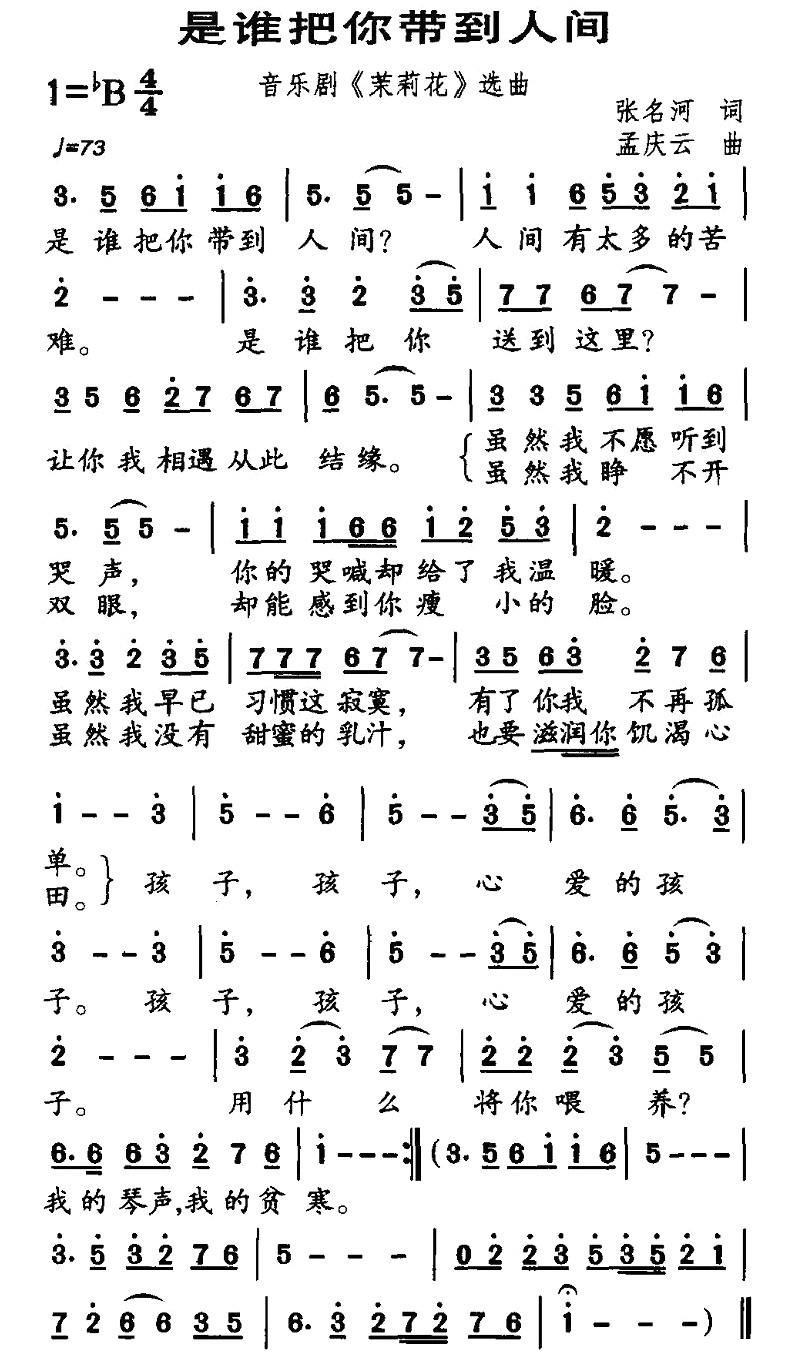 是谁把你带到人间
1=♭B 4/4
音乐剧《茉莉花》选曲
张名河 词
♩=73
孟庆云 曲
3. 5 6 1 1 6 | 5. 5 5 - | 1 1 6 5 3 2 1 |
是谁把你带到 人 间? 人间有太多的苦
2 - - - | 3. 3 2 3 5 | 7 7 6 7 7 - |
难。 是谁把你 送到这里?
3 5 6 2 7 6 7 | 6 5. 5 - | 3 3 5 6 1 1 6 |
让你我相遇从此 结缘。 虽然我不愿听到
虽然我睁 不开
5. 5 5 - | 1 1 1 6 6 1 2 5 3 | 2 - - - |
哭声, 你的哭喊却给了我温 暖。
双眼, 却能感到你瘦 小的 脸。
3. 3 2 3 5 | 7 7 7 6 7 7 - | 3 5 6 3 2 7 6 |
虽然我早已 习惯这寂寞, 有了你我 不再孤
虽然我没有 甜蜜的乳汁, 也要滋润你饥渴心
1 - - 3 | 5 - - 6 | 5 - - 3 5 | 6. 6 5. 3 |
单。
田。 孩 子, 孩 子, 心 爱的孩
3 - - 3 | 5 - - 6 | 5 - - 3 5 | 6. 6 5 3 |
子。 孩 子, 孩 子, 心 爱的孩
2 - - - | 3 2 3 7 7 | 2 2 2 3 5 5 |
子。 用什 么 将你喂 养?
6. 6 6 3 2 7 6 | 1 - - - :|| (3. 5 6 1 1 6 | 5 - - - |
我的琴声,我的贫 寒。
3. 5 3 2 7 6 | 5 - - - | 0 2 2 3 5 3 5 2 1 |
7 2 6 6 3 5 | 6. 3 2 7 2 7 6 | 1 - - - ) ||